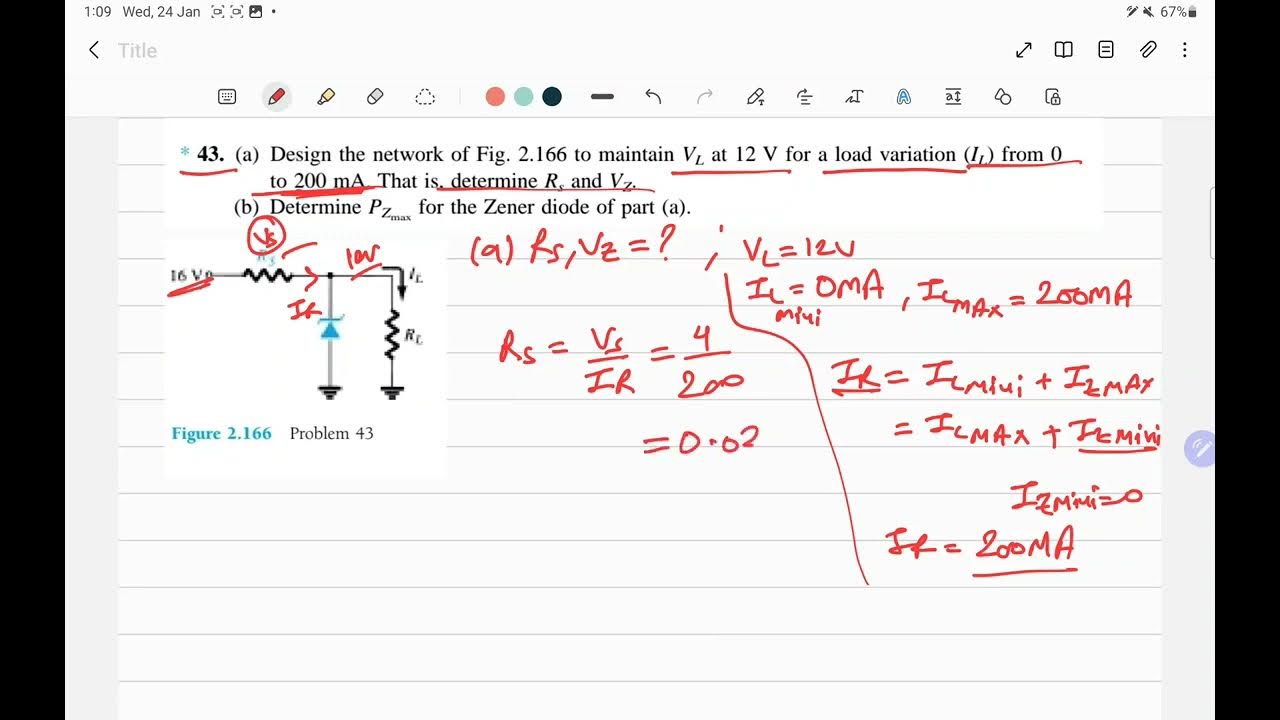 1:09 Wed, 24 Jan
67%
Title
* 43. (a) Design the network of Fig. 2.166 to maintain VL at 12 V for a load variation (IL) from 0
to 200 mA. That is, determine Rs and VZ.
(b) Determine PZmax for the Zener diode of part (a).
Vs
Rs
16 V
IR
IL
RL
Figure 2.166 Problem 43
(a) Rs, VZ = ? ; VL = 12V
IL mini = 0MA, ILMAX = 200MA
Rs = Vs/IR = 4/200
= 0.02
IR = ILMini + IZMAX
= ILMAX + IZMini
IZMini = 0
IR = 200MA